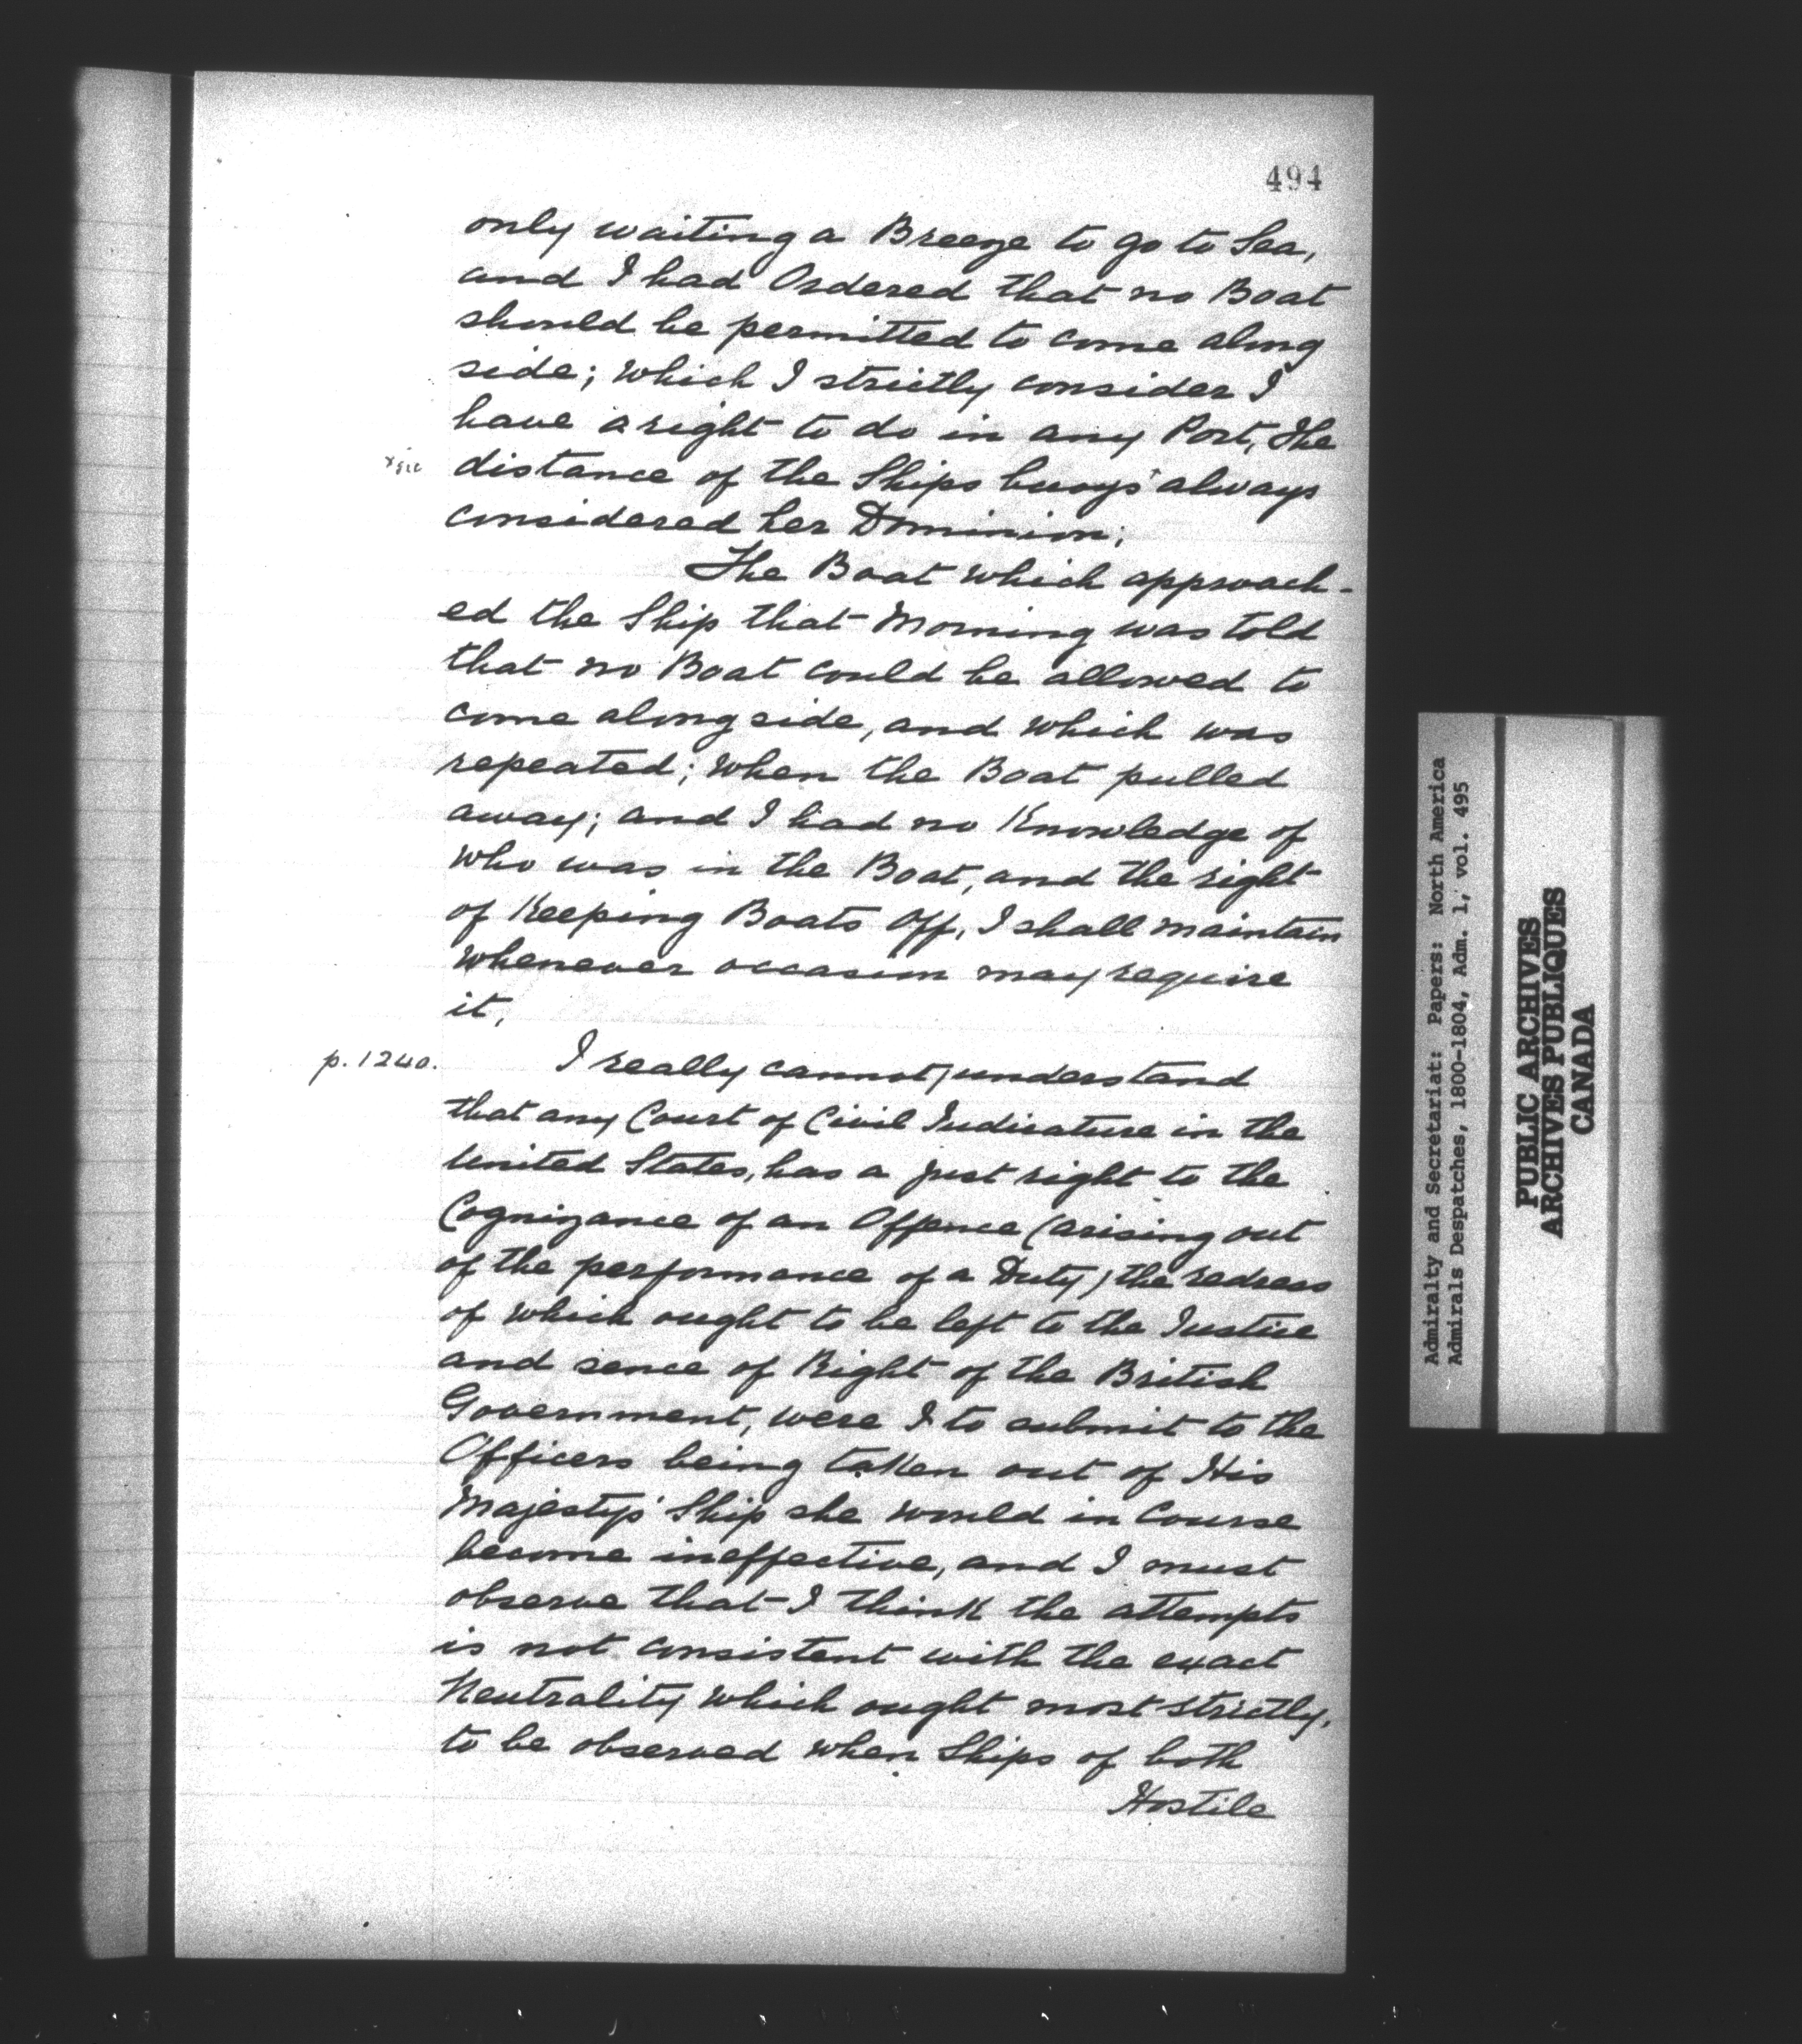 494
only waiting a Breeze to go to Sea,
and I had Ordered that no Boat
should be permitted to come along
side; which I strictly consider I
have a right to do in any Port, The
x sic
distance of the Ships buoys x always
considered her Dominion;
The Boat which approach-
ed the Ship that Morning was told
that no Boat could be allowed to
come along side, and which was
repeated; when the Boat pulled
away; and I had no Knowledge of
who was in the Boat, and the right
of Keeping Boats Off, I shall maintain
whenever occasion may require
it,
p. 1240.
I really cannot / understand
that any Court of Civil Judicature in the
United States, has a just right to the
Cognizance of an Offence (arising out
of the performance of a Duty) the redress
of which ought to be left to the Justice
and sence of Right of the British
Government, were I to submit to the
Officers being taken out of His
Majestys' Ship she would in Course
become ineffective, and I must
observe that I think the attempts
is not consistent with the exact
Neutrality which ought most strictly,
to be observed when Ships of both
Hostile
Admiralty and Secretariat: Papers: North America
Admirals Despatches, 1800-1804, Adm. 1, vol. 495
PUBLIC ARCHIVES
ARCHIVES PUBLIQUES
CANADA